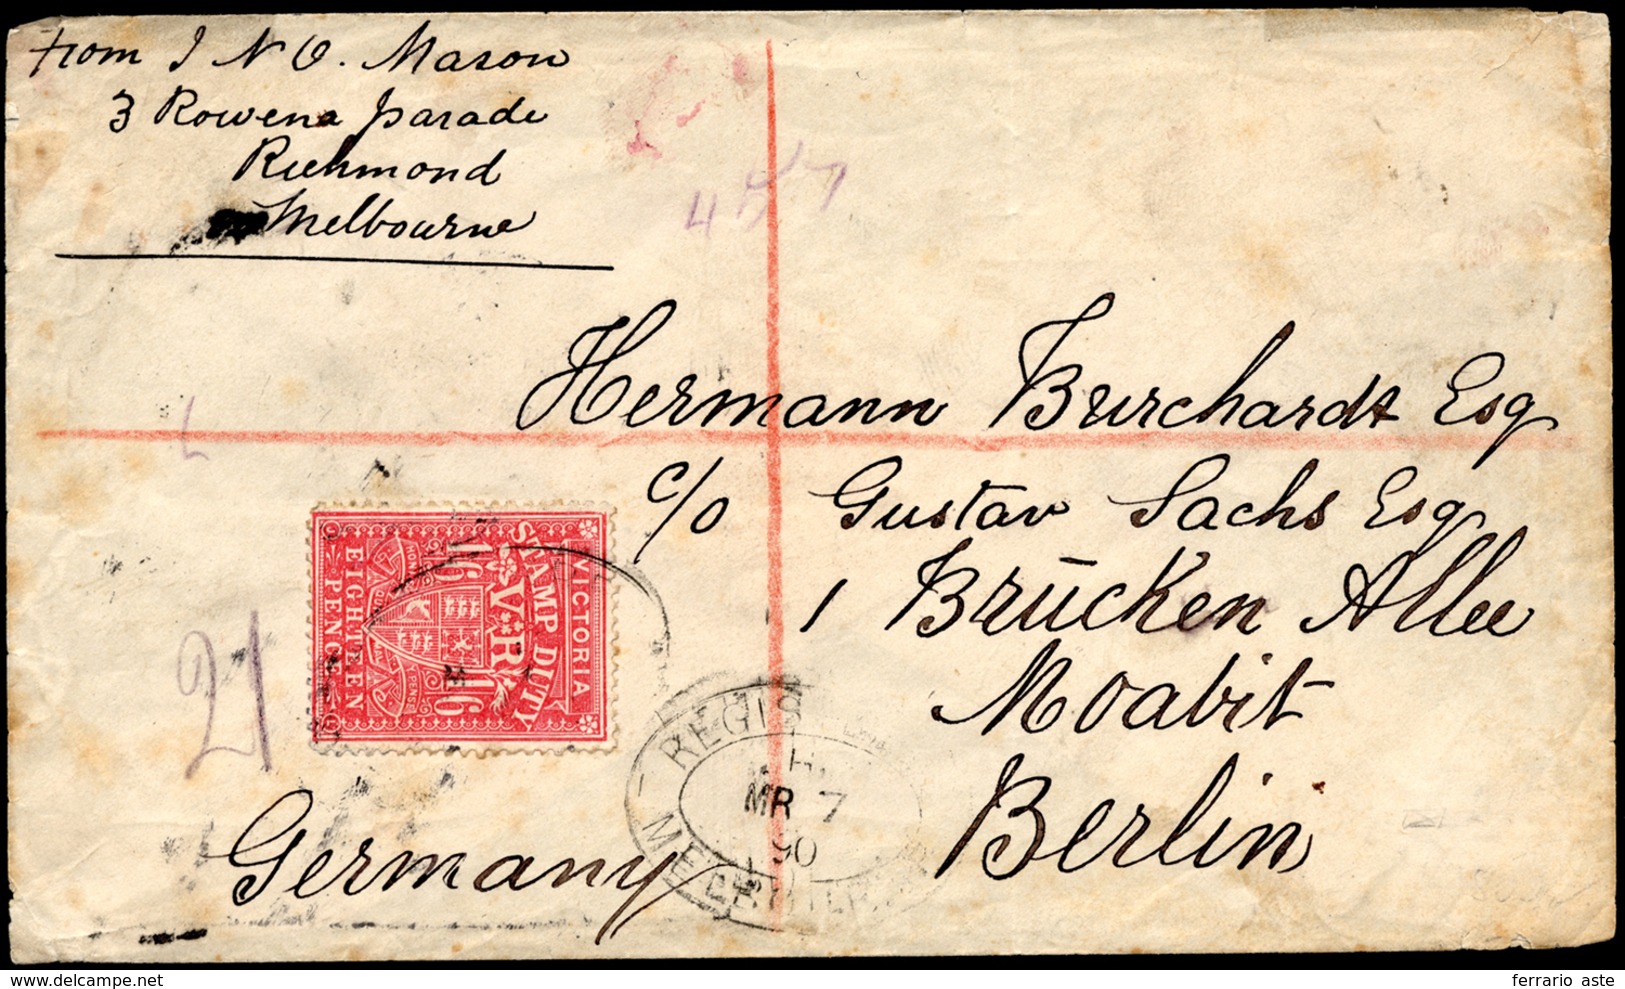 From J N O. Mason
3 Rowena parade
Richmond
Melbourne
457
Hermann Burchardt Esq
c/o Gustav Sachs Esq
1 Brücken Allee
Moabit
Berlin
Germany
21
VICTORIA
STAMP DUTY
V R
1/6 1/6
EIGHTEEN
PENCE
REGIS
MR 7
90
MELBOURNE
delcampe.net
ferrario aste